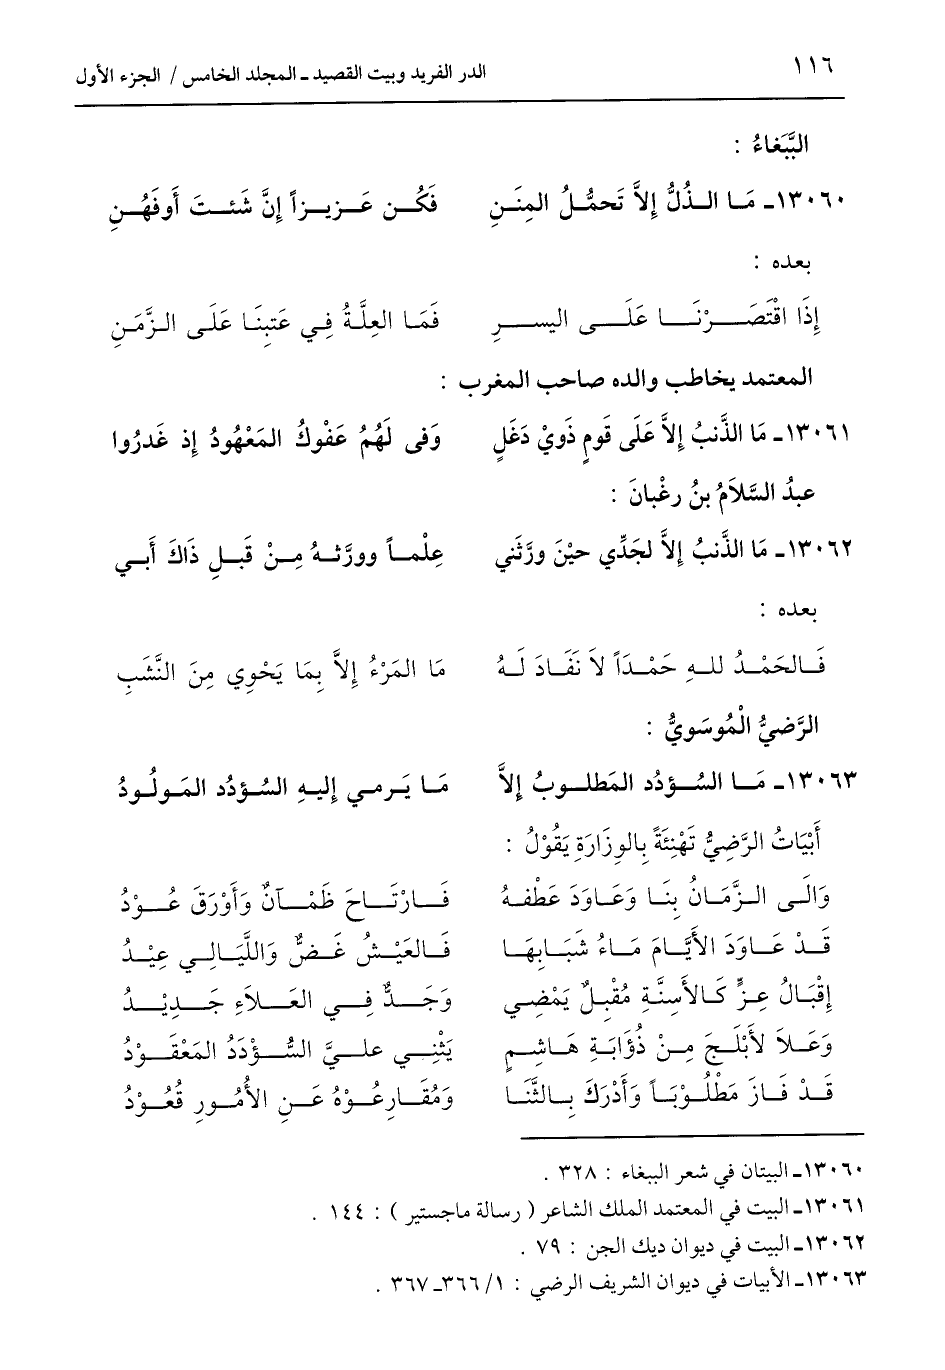 ١١٦ الدر الفريد وبيت القصيد ـ المجلد الخامس / الجزء الأول
البَّبَغاءُ :
١٣٠٦٠ـ مَـا الـذُلُّ إلاَّ تَحمُّـلُ المِنَـنِ فَكُـن عَـزيـزاً إنَّ شَئـتَ أَوفَهُـنِ
بعده :
إِذَا اقْتَصَـرْنَـا عَلَـى اليسـرِ فَمَـا العِلَّـةُ فِـي عَتبِنَـا عَلَـى الـزَّمَـنِ
المعتمد يخاطب والده صاحب المغرب :
١٣٠٦١ـ مَا الذَّنبُ إلاَّ عَلَى قَومٍ ذَوِيْ دَغَلٍ وَفى لَهُمُ عَفْوكُ المَعْهُودُ إذ غَدرُوا
عبدُ السَّلاَمُ بنُ رغْبانَ :
١٣٠٦٢ـ مَا الذَّنبُ إلاَّ لجَدِّي حيْنَ ورَّثَني عِلْمـاً وورَّثـهُ مِـنْ قَبـلِ ذَاكَ أَبـي
بعده :
فَـالحَمْـدُ للـهِ حَمْـدَاً لاَ نَفَـادَ لَـهُ مَا المَرْءُ إلاَّ بِمَا يَحْوِي مِنَ النَّشَبِ
الرَّضيُّ الْمُوسَويُّ :
١٣٠٦٣ـ مَـا السُـؤدُد المَطلـوبُ إلاَّ مَـا يَـرمـي إليـهِ السُـؤدُد المَـولُـودُ
أَبْيَاتُ الرَّضِيُّ تَهْنِئَةً بِالوِزَارَةِ يَقُوْلُ :
وَالَـى الـزَّمَـانُ بنَـا وَعَـاوَدَ عَطْفـهُ فَـارْتَـاحَ ظَمْـآنٌ وَأَوْرَقَ عُـوْدُ
قَـدْ عَـاوَدَ الأَيَّـامَ مَـاءُ شَبَـابِهَـا فَـالعَيْـشُ غَـضٌّ وَاللَّيَـالِـي عِيْـدُ
إقْبَالُ عِـزٍّ كَـالأسِنَّةِ مُقْبـلٌ يَمْضِي وَجَـدٌّ فِـي العَـلاَءِ جَـدِيْـدُ
وَعَـلاَ لأَبْلَـجَ مِـنْ ذُؤَابَـةِ هَـاشِـمٍ يَثْنِـي علـيَّ السُّـؤْدَدُ المَعْقُـودُ
قَـدْ فَـازَ مَطْلُـوْبَـاً وَأَدْرَكَ بِـالثَّنَـا وَمُقَـارِعُـوْهُ عَـنِ الأُمُـورِ قُعُـوْدُ
١٣٠٦٠ـ البيتان في شعر الببغاء : ٣٢٨ .
١٣٠٦١ـ البيت في المعتمد الملك الشاعر ( رسالة ماجستير ) : ١٤٤ .
١٣٠٦٢ـ البيت في ديوان ديك الجن : ٧٩ .
١٣٠٦٣ـ الأبيات في ديوان الشريف الرضي : ١/ ٣٦٦ـ٣٦٧ .